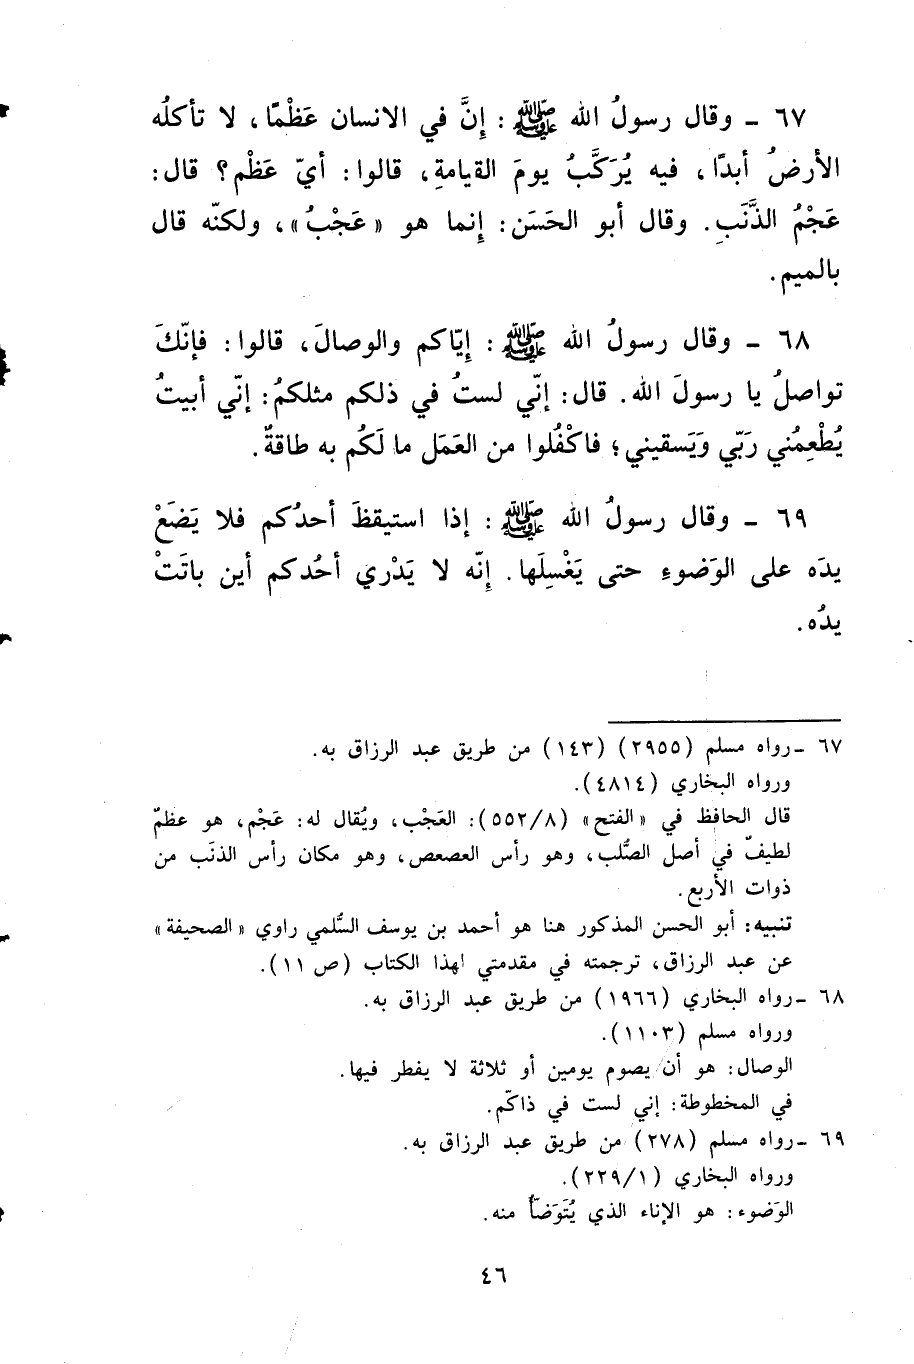 ٦٧ - وقال رسولُ الله ﷺ : إنَّ في الانسان عَظْمًا، لا تأكلُه
الأرضُ أبدًا، فيه يُرَكَّبُ يومَ القيامةِ، قالوا: أيّ عَظْم؟ قال:
عَجْمُ الذَّنَبِ. وقال أبو الحَسَن: إنما هو «عَجْبُ»، ولكنّه قال
بالميم.
٦٨ - وقال رسولُ الله ﷺ : إيّاكم والوصالَ، قالوا: فإنّكَ
تواصلُ يا رسولَ الله. قال: إنّي لستُ في ذلكم مثلكمُ: إنّي أبيتُ
يُطْعِمُني رَبّي وَيَسقيني؛ فاكْفُلوا من العَمَل ما لَكُم به طاقةٌ.
٦٩ - وقال رسولُ الله ﷺ : إذا استيقظَ أحدُكم فلا يَضَعْ
يدَه على الوَضوءِ حتى يَغْسِلَها. إنّه لا يَدْري أحُدكم أين باتَتْ
يدُه.
٦٧ - رواه مسلم (٢٩٥٥) (١٤٣) من طريق عبد الرزاق به.
ورواه البخاري (٤٨١٤).
قال الحافظ في «الفتح» (٥٥٢/٨): العَجْب، ويُقال له: عَجْم، هو عظمٌ
لطيفٌ في أصل الصُّلب، وهو رأس العصعص، وهو مكان رأس الذنَب من
ذوات الأربع.
تنبيه: أبو الحسن المذكور هنا هو أحمد بن يوسف السُّلمي راوي «الصحيفة»
عن عبد الرزاق، ترجمته في مقدمتي لهذا الكتاب (ص ١١).
٦٨ - رواه البخاري (١٩٦٦) من طريق عبد الرزاق به.
ورواه مسلم (١١٠٣).
الوصال: هو أن يصوم يومين أو ثلاثة لا يفطر فيها.
في المخطوطة: إني لست في ذاكم.
٦٩ - رواه مسلم (٢٧٨) من طريق عبد الرزاق به.
ورواه البخاري (٢٢٩/١).
الوَضوء: هو الإناء الذي يُتَوَضّأ منه.
٤٦